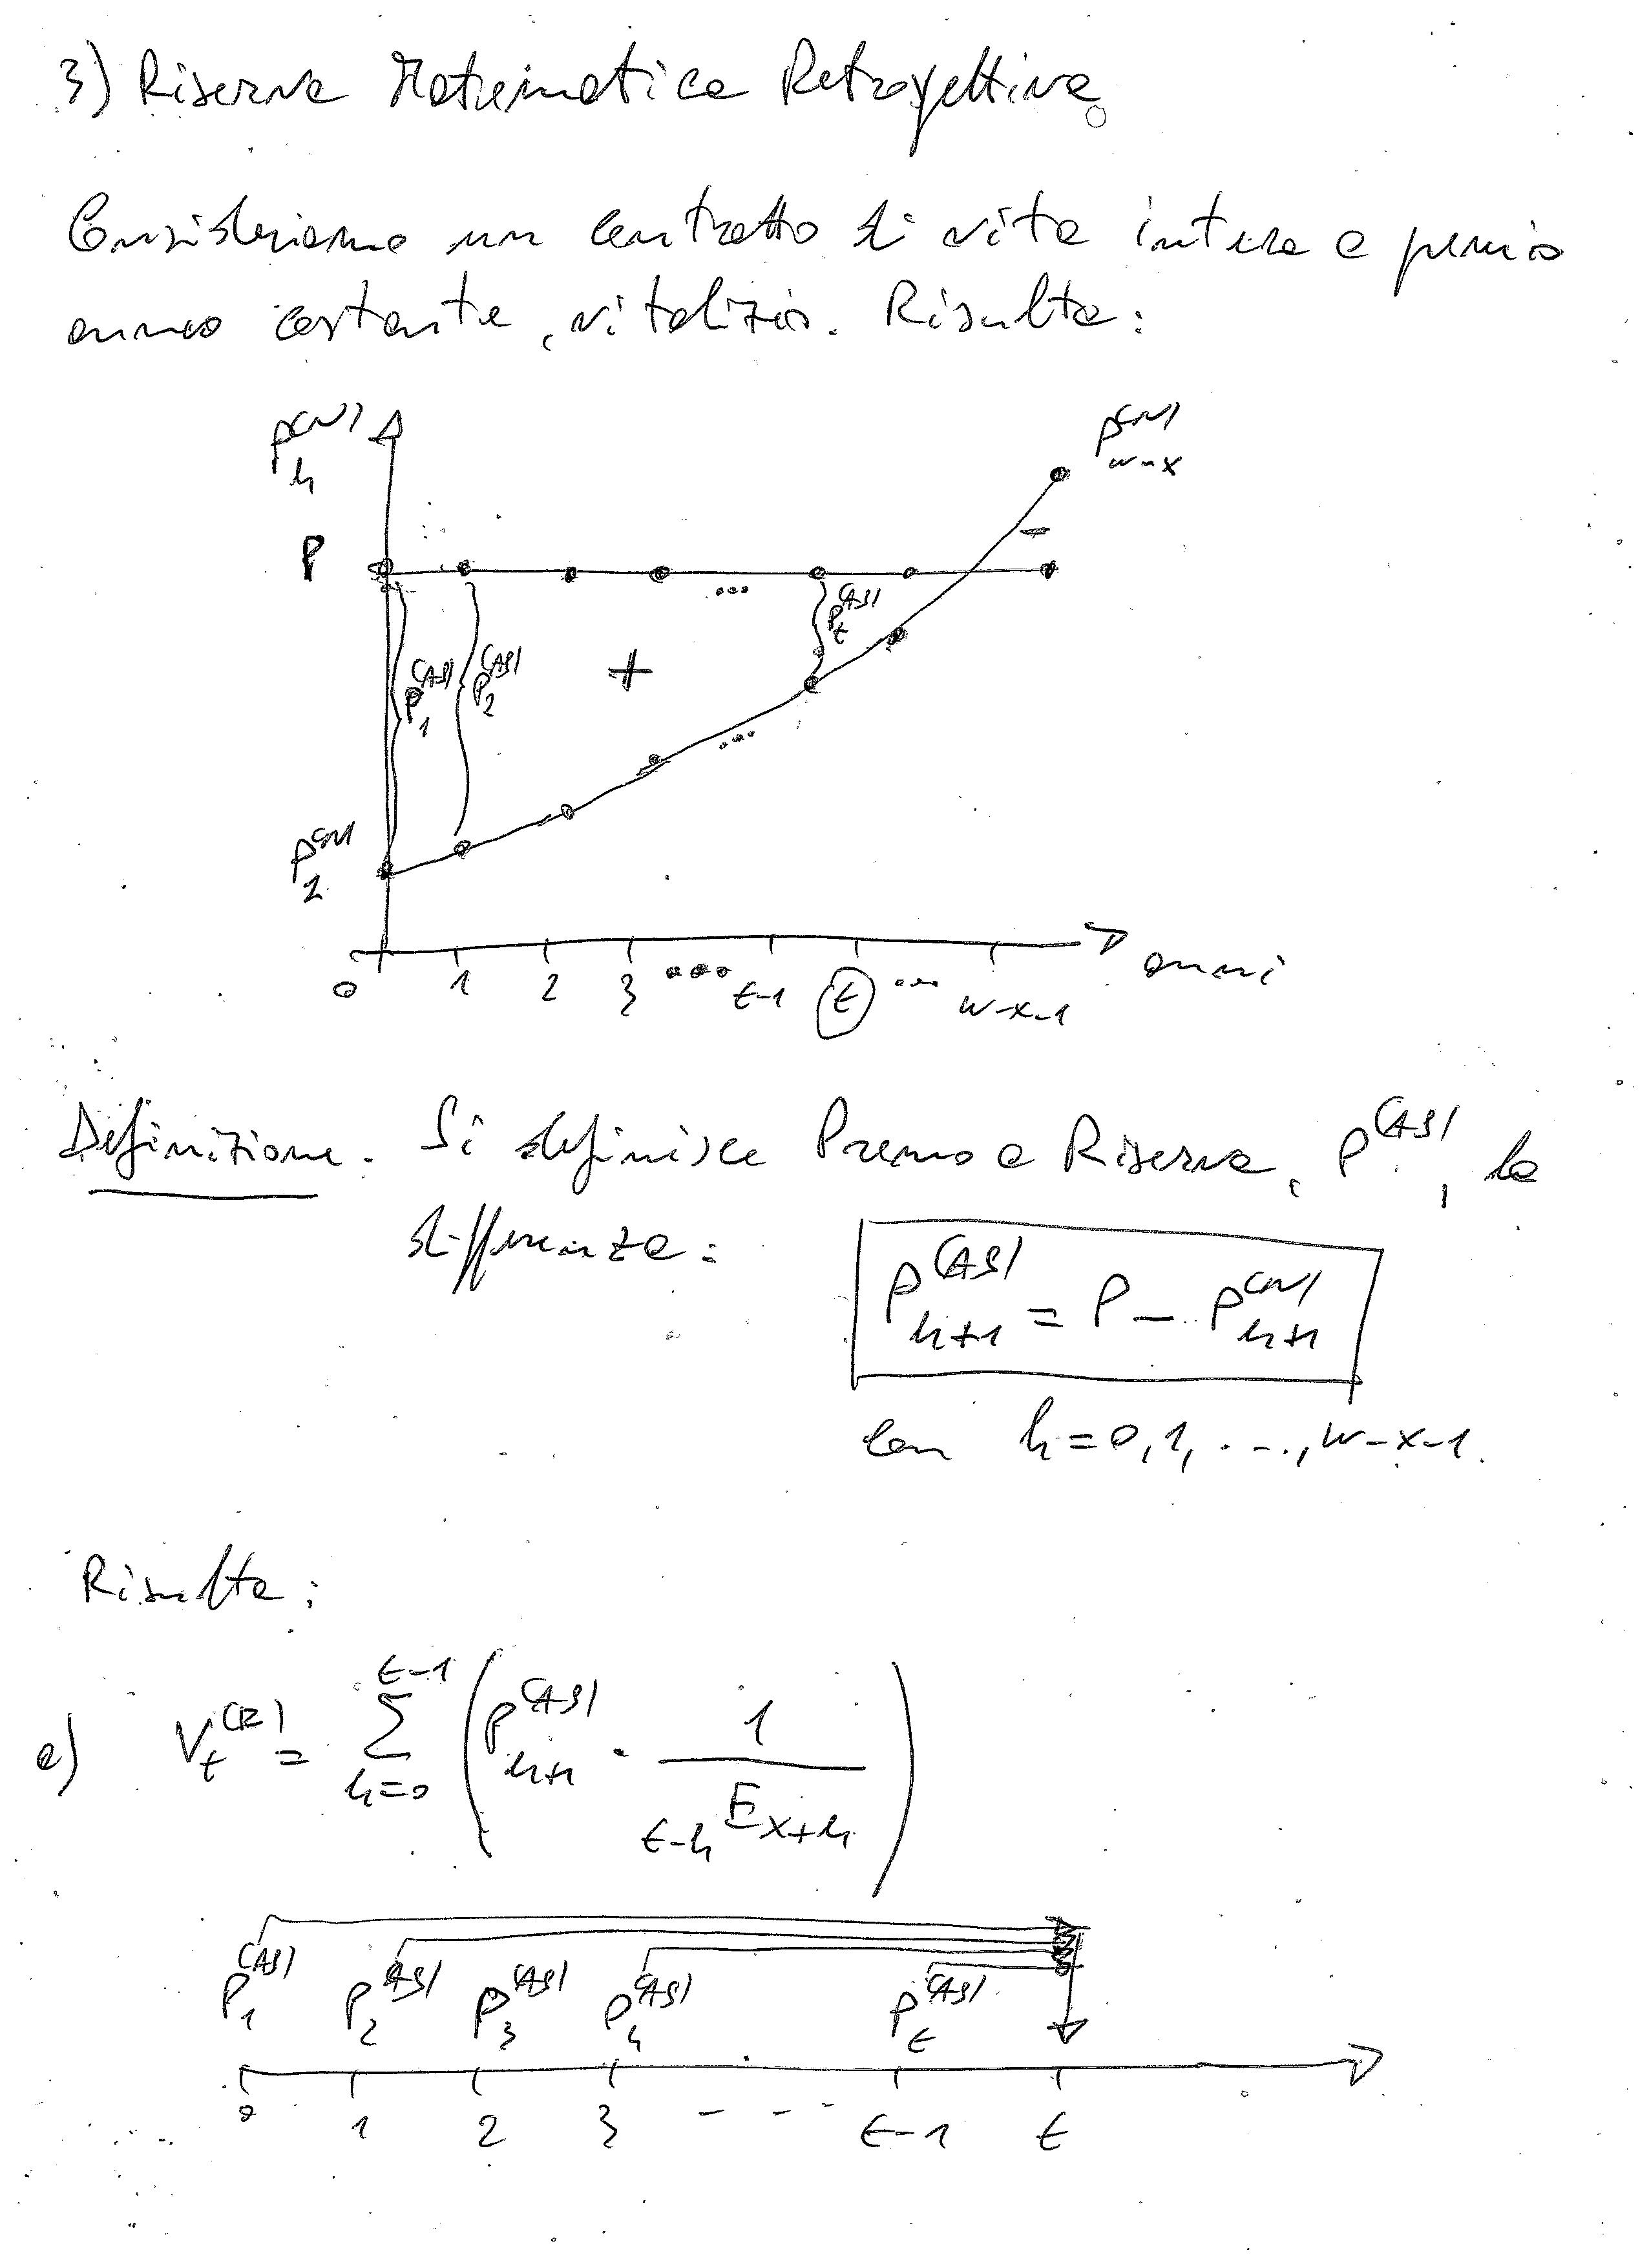 3) Riserva Matematica Retrospettiva
Consideriamo un contratto di vita intera a premio
annuo costante, vitalizio. Risulta:
P_h^(N)
P_{w-x}^(N)
P
...
P_1^(AS) P_2^(AS) + P_t^(AS) -
...
P_1^(N)
0 1 2 3 ... t-1 t ... w-x-1 anni
Definizione. Si definisce Premio a Riserva, P^(AS), la
differenza:
P_{h+1}^(AS) = P - P_{h+1}^(N)
con h=0,1,...,w-x-1.
Risulta:
a) V_t^(R) = ∑_{h=0}^{t-1} ( P_{h+1}^(AS) · 1 / _{t-h}E_{x+h} )
P_1^(AS) P_2^(AS) P_3^(AS) P_4^(AS) P_t^(AS)
0 1 2 3 - - - t-1 t